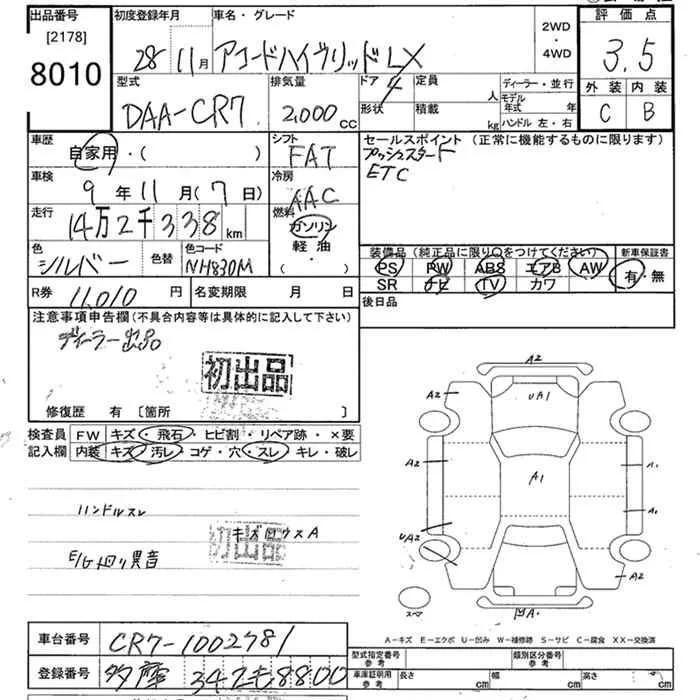 出品番号
[2178]
8010
初度登録年月
28 11月
車名・グレード
アコードハイブリッド LX
2WD
・
4WD
評価点
3.5
外装 内装
C B
型式
DAA-CR7
排気量
2,000 cc
ドア 4
定員 人
形状
積載 kg
ディーラー・並行
モデル年式 年
ハンドル 左・右
車歴
自家用・( )
シフト
FAT
セールスポイント (正常に機能するものに限ります)
プッシュスタート
ETC
車検
9年11月(7日)
冷房
AAC
走行
14万2千338km
燃料
ガソリン
軽油
・
( )
色
シルバー
色替
色コード
NH830M
装備品(純正品に限り○をつけてください)
PS PW ABS エアB AW
SR ナビ TV カワ
新車保証書
有・無
R券 11,010円
名変期限 月 日
後日品
注意事項申告欄(不具合内容等は具体的に記入して下さい)
ディーラー出品
初出品
修復歴 有 [箇所 ]
検査員
記入欄
FW キズ・飛石・ヒビ割・リペア跡・×要
内装 キズ・汚レ・コゲ・穴・スレ・キレ・破レ
ハンドルスレ
初出品
E/G廻り異音
A2
A2
UA1
A2
A1
A1
A1
UA2
A2
A1
スペア
A-キズ E-エクボ U-凹み W-補修跡 S-サビ C-腐食 XX-交換済
車台番号 CR7-1002781
登録番号 多摩 347 8800
型式指定番号
参考
類別区分番号
参考
車庫証明用
参考
長さ cm
幅 cm
高さ cm